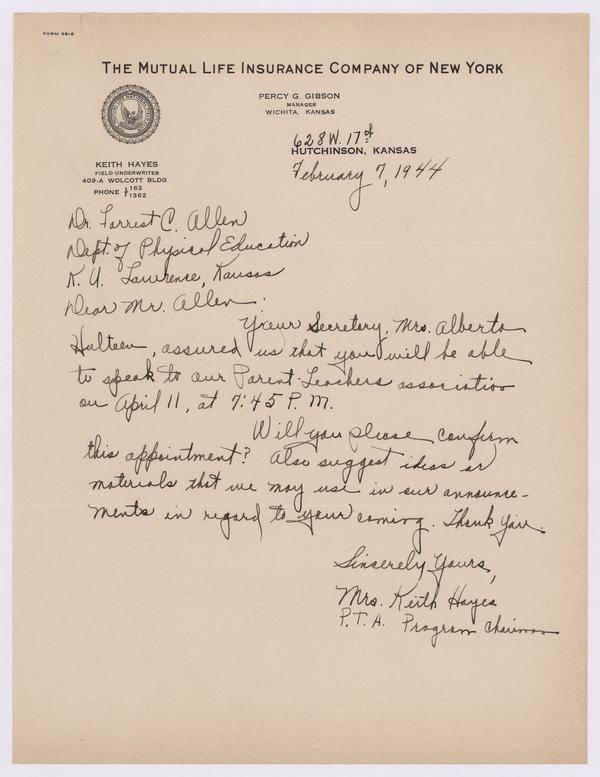 FORM 3616
THE MUTUAL LIFE INSURANCE COMPANY OF NEW YORK
PERCY G. GIBSON
MANAGER
WICHITA, KANSAS
628 W. 17th
HUTCHINSON, KANSAS
February 7, 1944
KEITH HAYES
FIELD UNDERWRITER
409-A WOLCOTT BLDG.
PHONE 162
1362
Dr. Forrest C. Allen
Dept. of Physical Education
K. U. Lawrence, Kansas
Dear Mr. Allen:
Your Secretary, Mrs. Alberta
Hulteen, assured us that you will be able
to speak to our Parent-Teachers association
on April 11, at 7:45 P.M.
Will you please confirm
this appointment? Also suggest ideas or
materials that we may use in our announce-
ments in regard to your coming. Thank you.
Sincerely Yours,
Mrs. Keith Hayes
P.T.A. Program Chairman